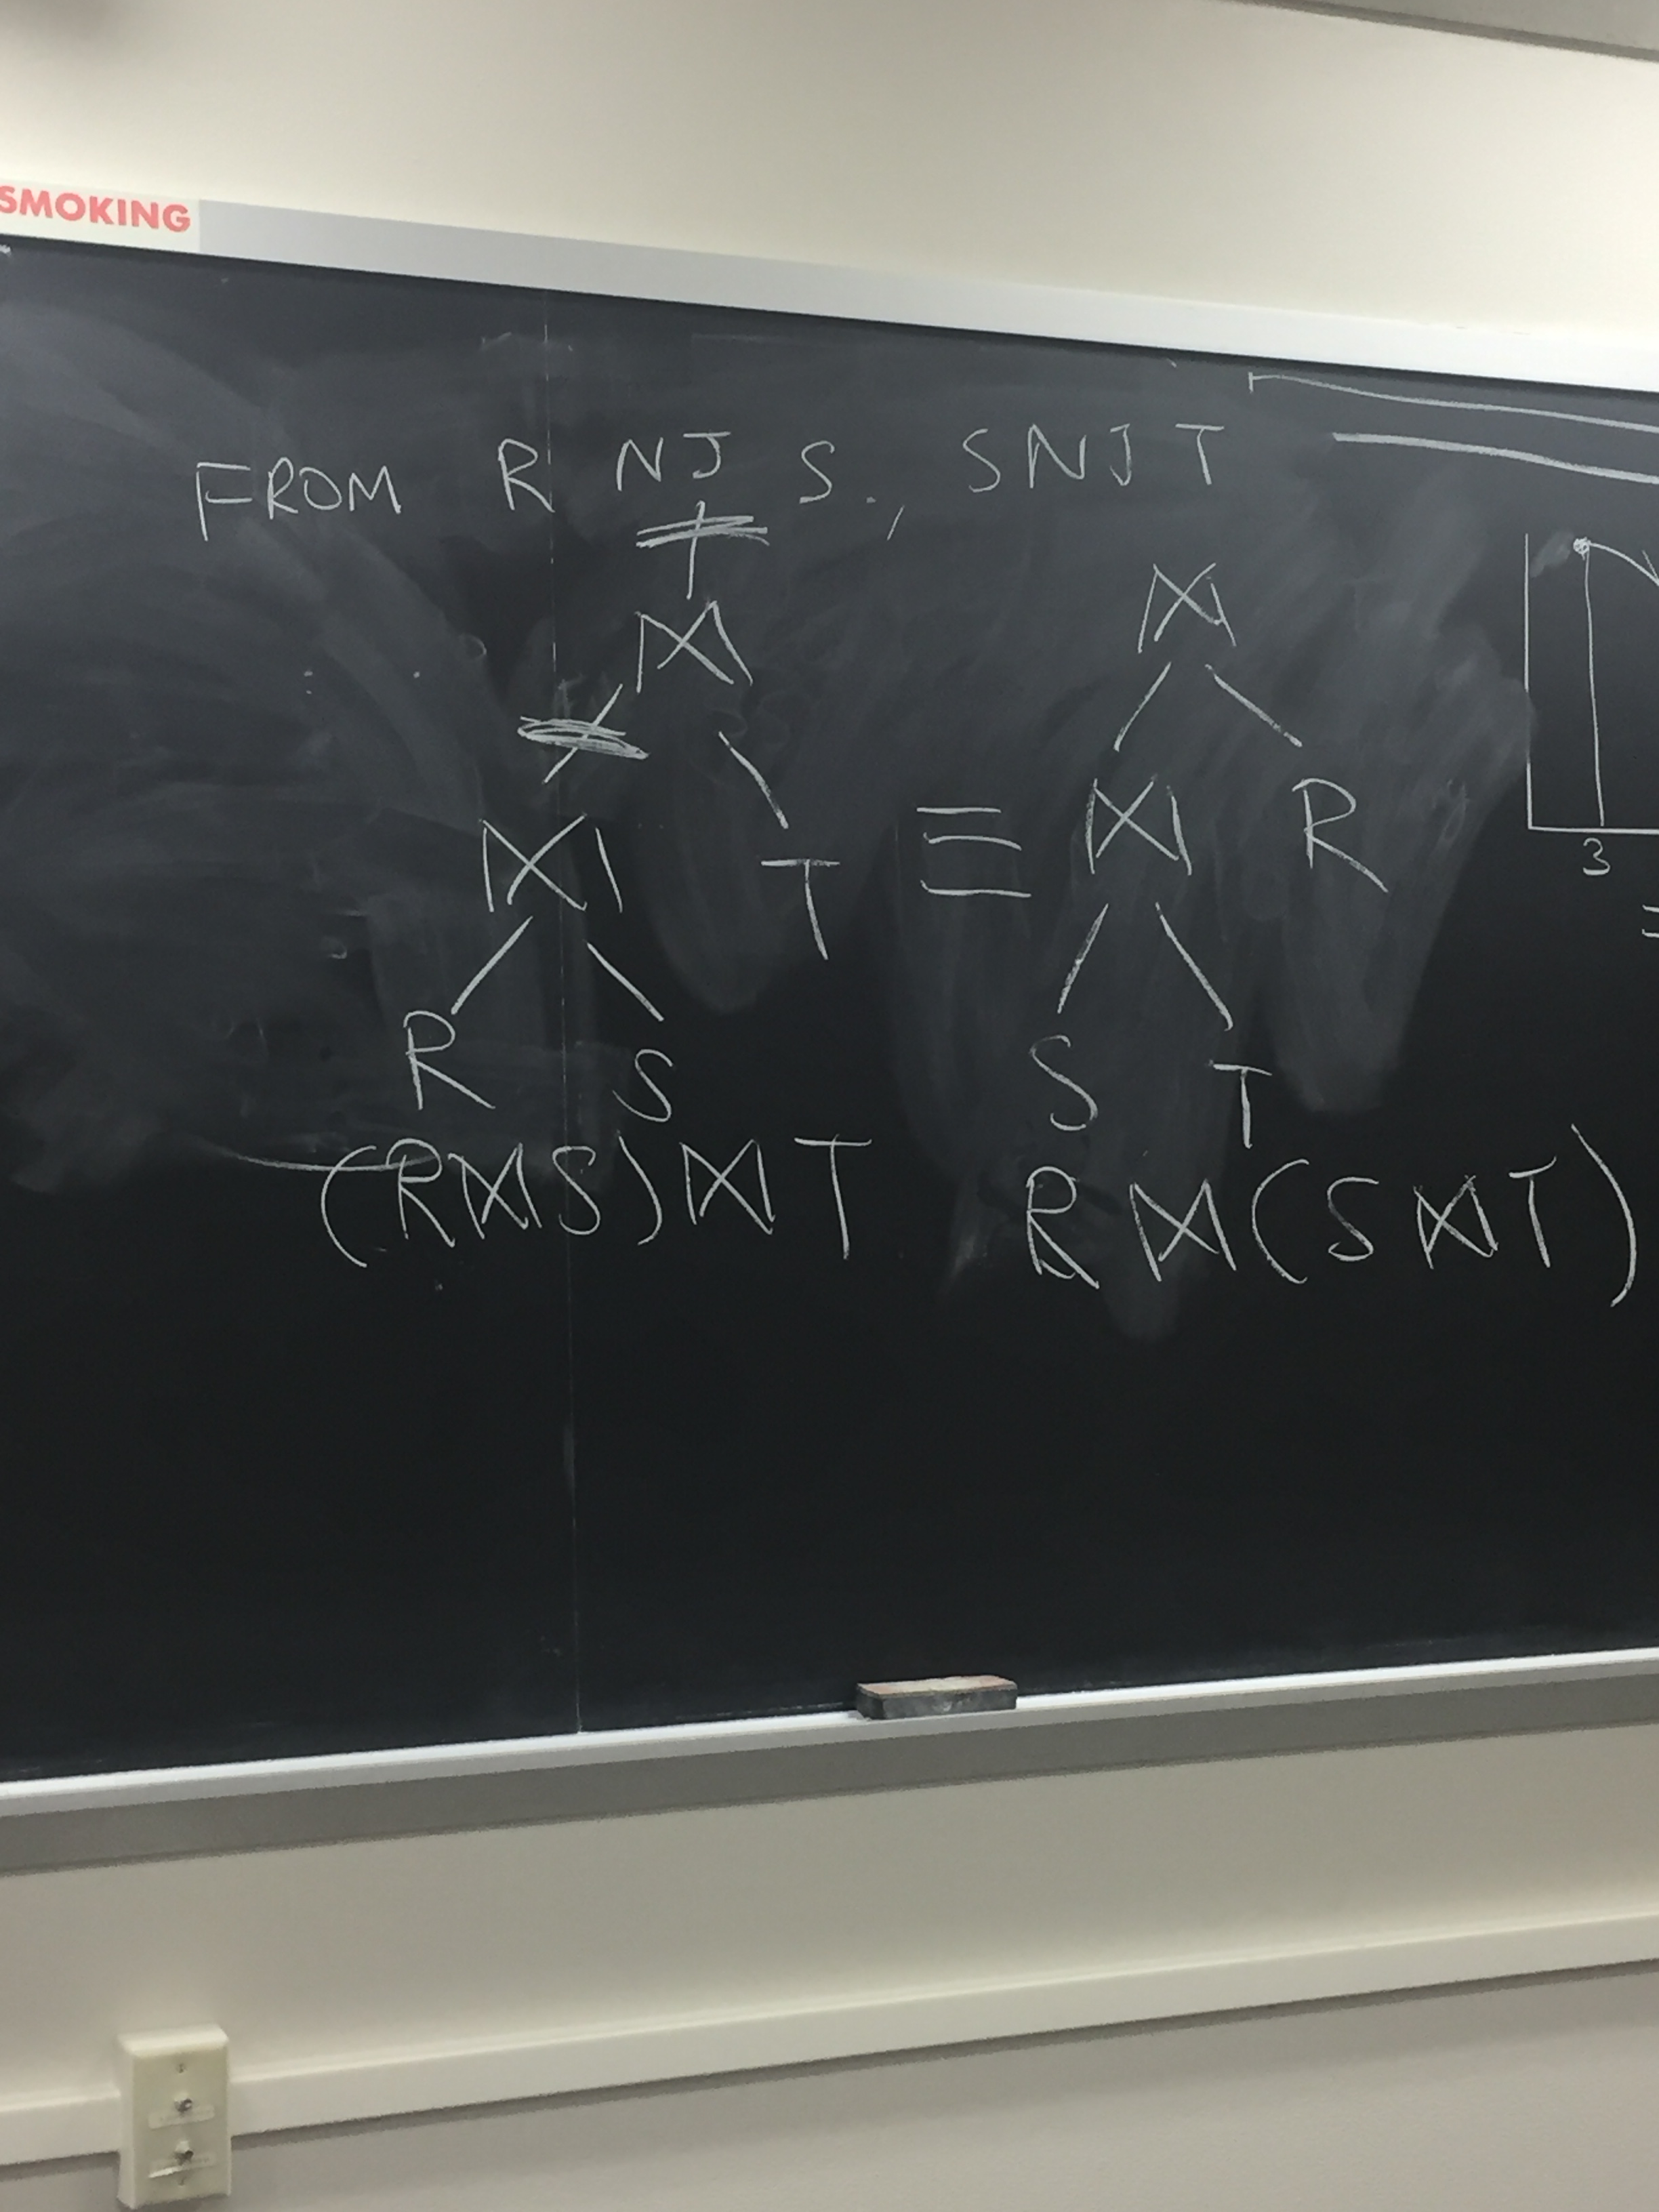 SMOKING
FROM R NJ S., S NJ T
⋈ ⋈
⋈ T ≡ ⋈ R
3
R S S T
(R⋈S)⋈T R⋈(S⋈T)